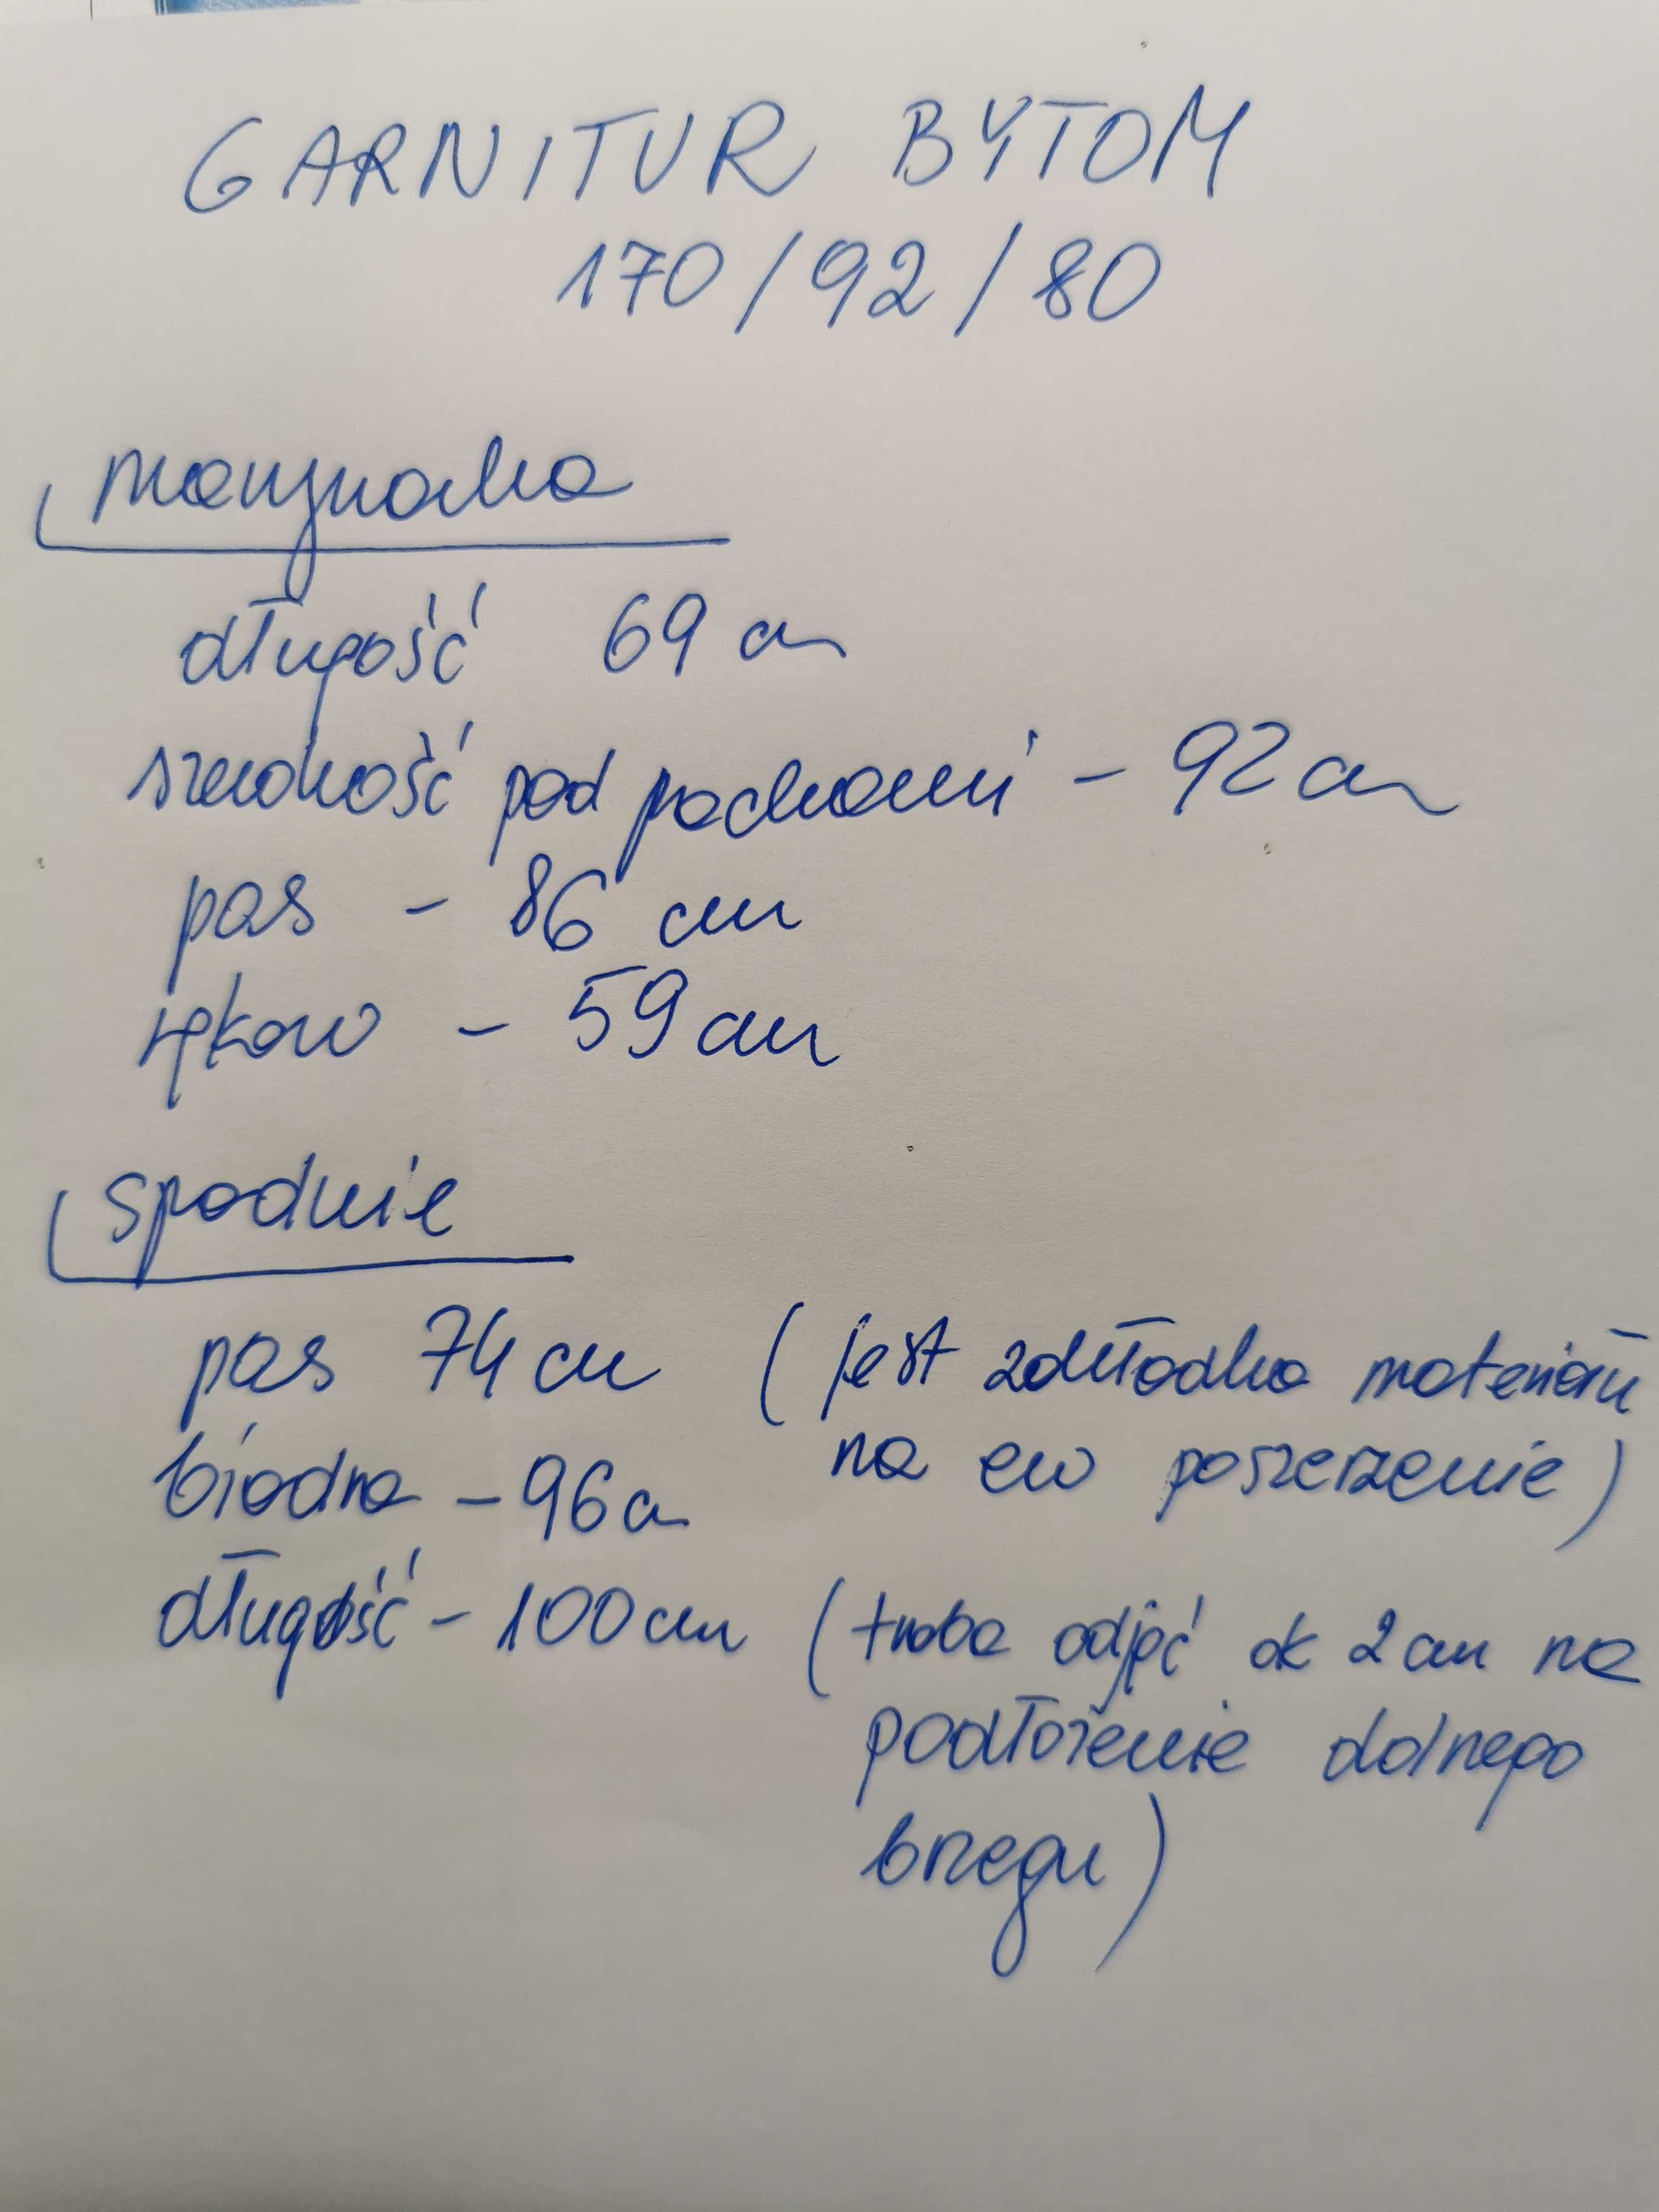 GARNITUR BYTOM
170/92/80
marynarka
długość 69 cm
szerokość pod pachami - 92 cm
pas - 86 cm
rękaw - 59 cm
spodnie
pas 74 cm (jest zakładka materiału
na ew poszerzenie)
biodra - 96 cm
długość - 100 cm (trzeba odjąć ok 2 cm na
podłożenie dolnego
brzegu)